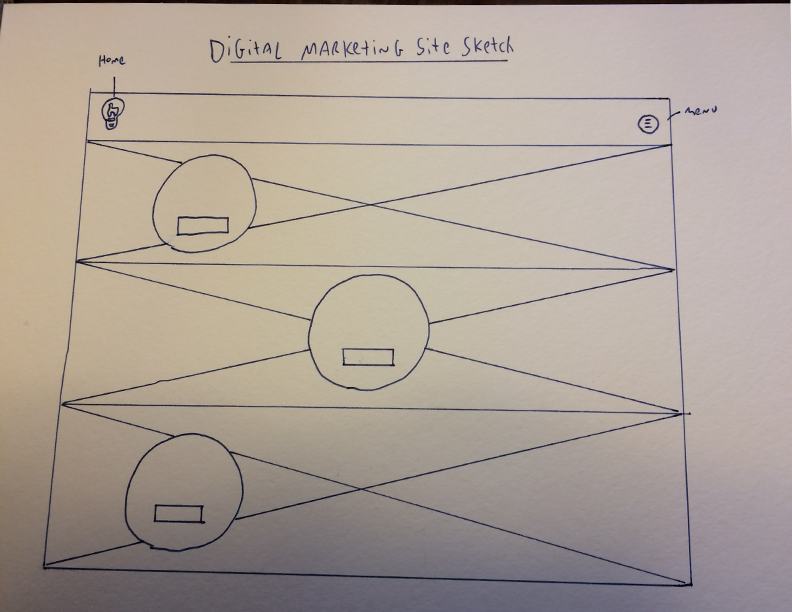 DiGiTAL MARKetiNG Site Sketch
Home
MENU